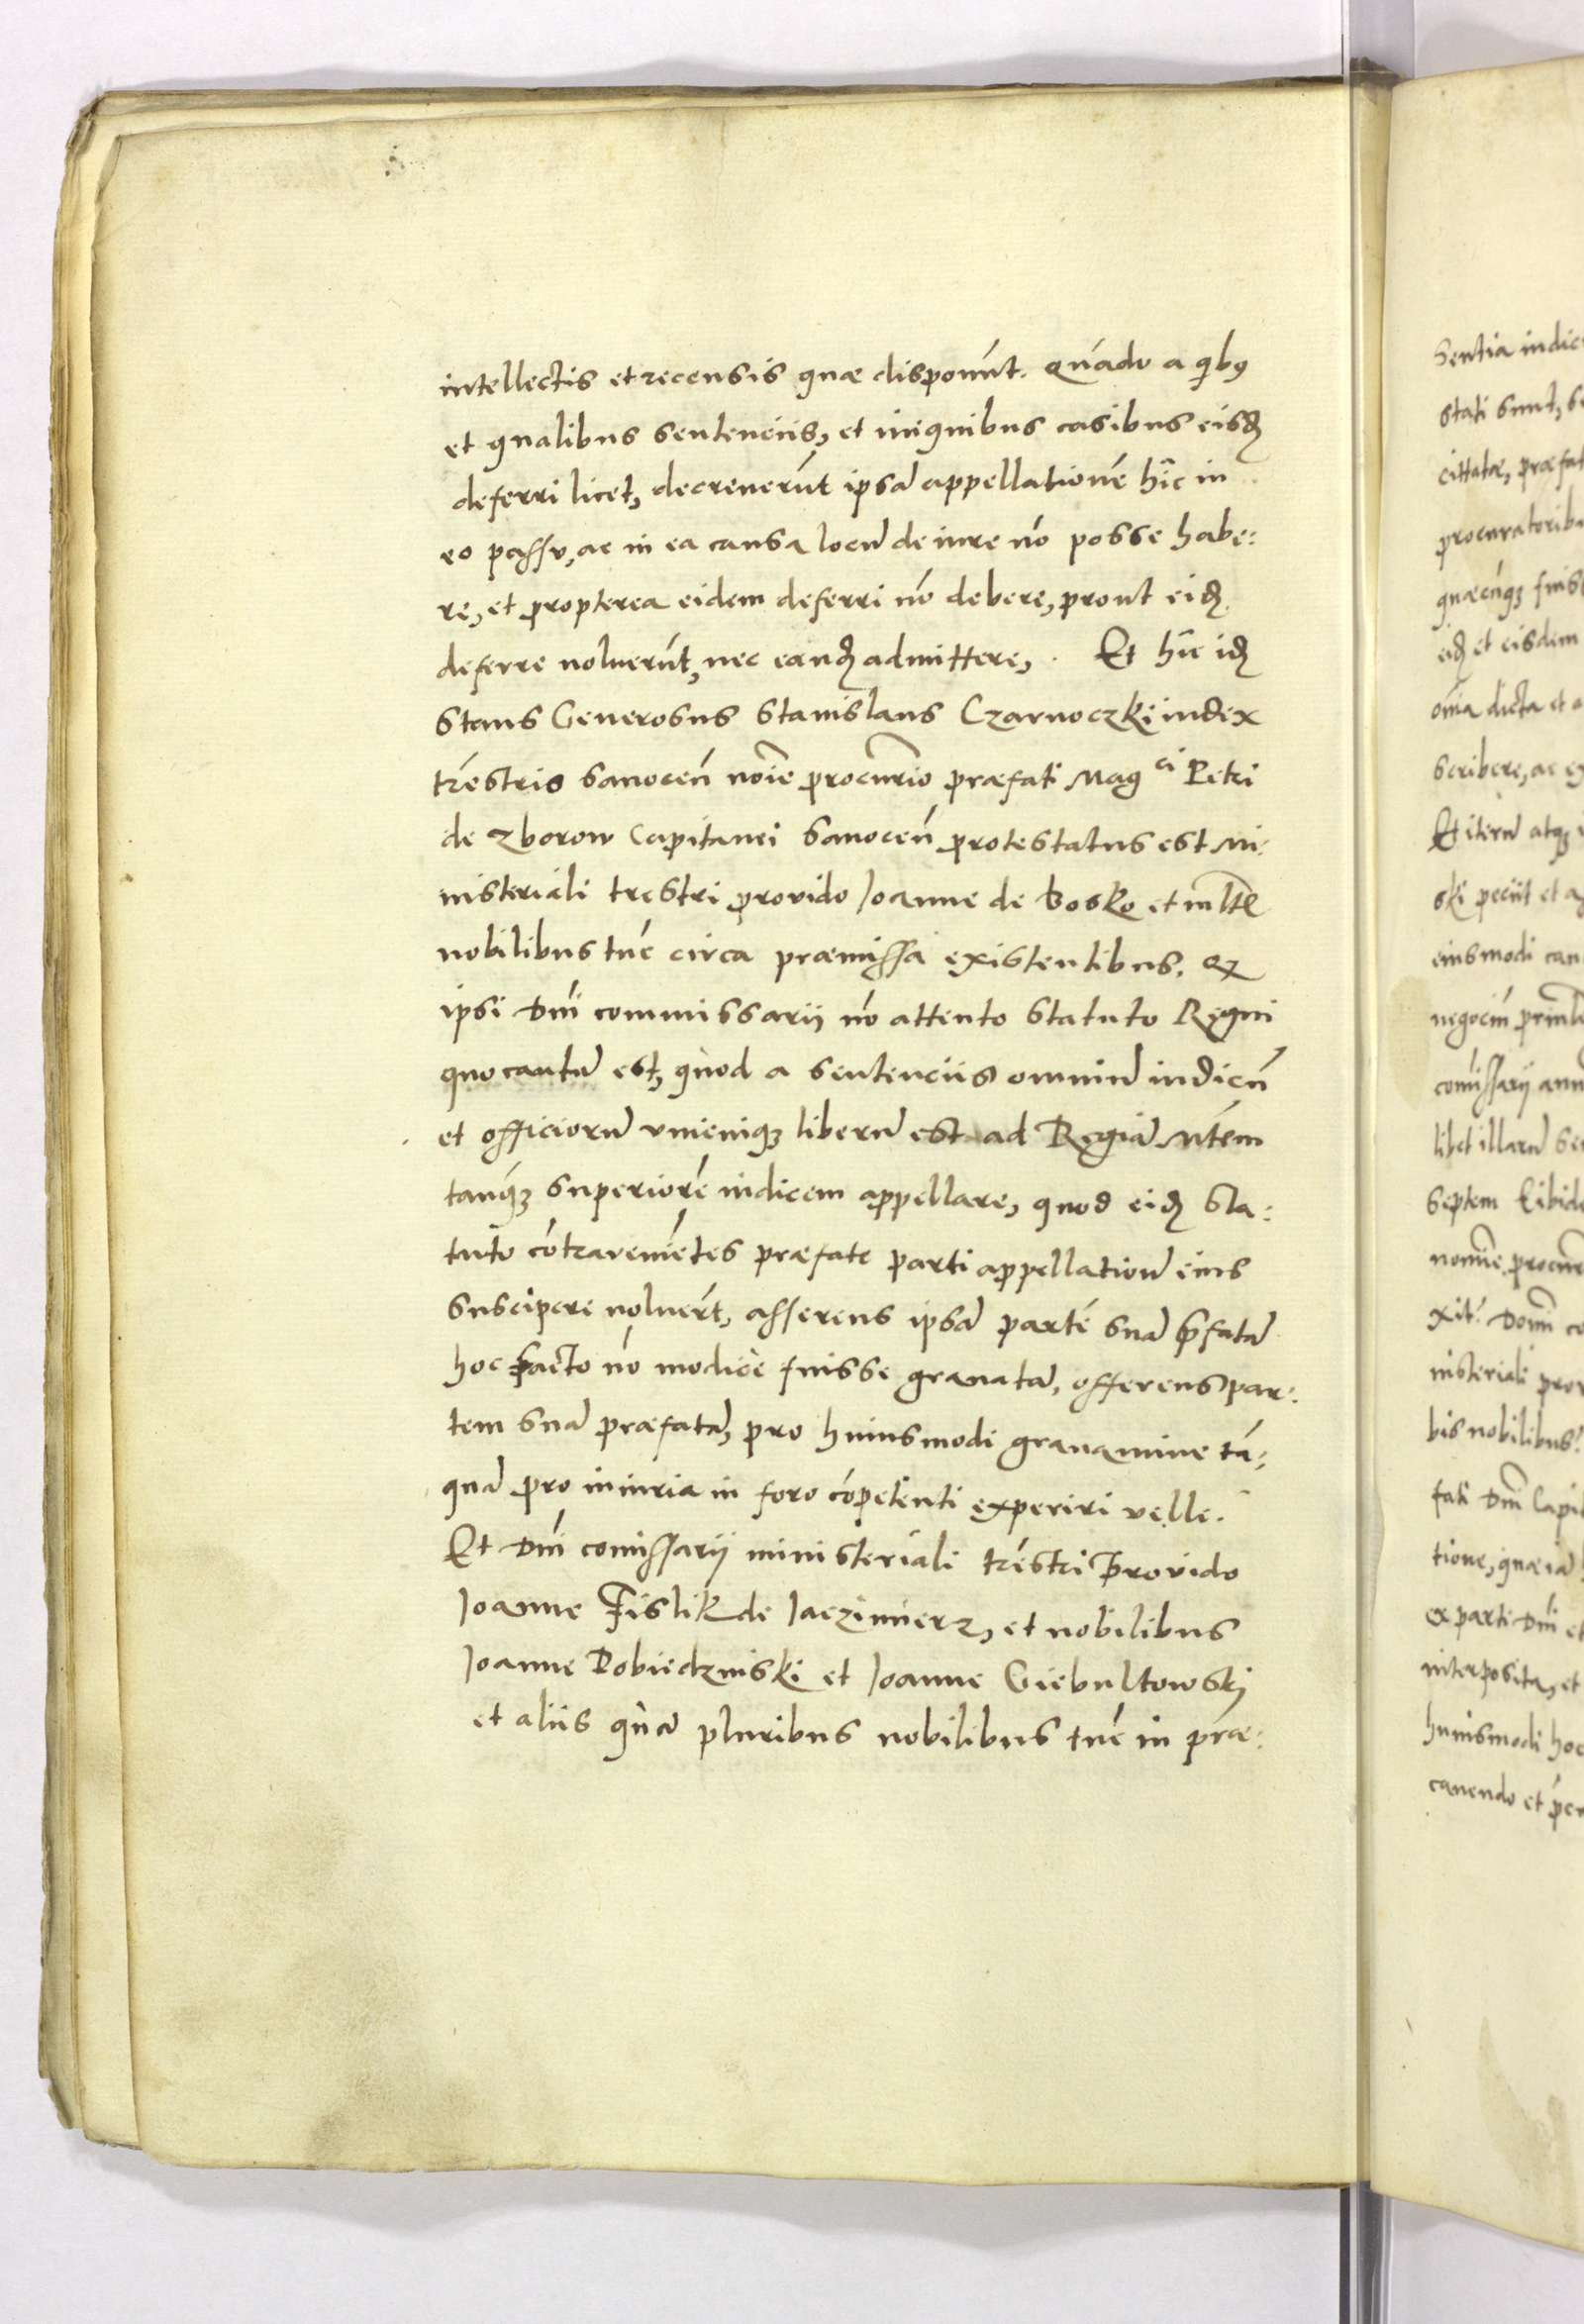 intellectis et recensis quae disponūt. Quādo a qibꝰ
et qualibus sentenciis, et in quibus casibus eisdē
deferri licet, decreverūt ipsā appellationē hīc in
eo passu, ac in ea causa locū de iure nō posse habe:
re, et propterea eidem deferri nō debere, prout eidē
deferre noluerūt, nec eandē admittere,. Et hīc idē
stans Generosus Stanislaus Czarnoczki iudex
trēstris Sanoceñ noīe procurīo praefati Mag ci Petri
de Zborow Capitanei Sanoceñ protestatus est Mi:
nisteriali trēstri provido Joanne de Bosko et mltē
nobilibus tūc circa praemissa existentibus. Q
ipsi Dnī commissarii nō attento Statuto Regni
quo cautū est, quod a sentenciis omniū iudicū
et officiorū unicuiqꝫ liberū est ad Regiā Mtēm
tanqꝫ superiorē iudicem appellare, quod eidē sta:
tuto cōtravenietes praefate parti appellationē eius
suscipere noluerūt, asserens ipsā partē suā p̄fatā
hoc facto nō modicē fuisse gravatā, offerens par:
tem suā praefatā, pro huiusmodi gravamine tā:
quā pro iniuria in foro cōpetenti experiri velle.
Et Dnī comissarii ministeriali trēstri Provido
Joanne Fislik de Jaczimierz, et nobilibus
Joanne Dobiedzniski et Joanne Giebultowskj
et aliis quā pluribus nobilibus tūc in prae:
Sentia
stati sunt,
cittatae, praefat
procuratorib
quaecūqꝫ fuis
eidē et eisdem
ōnia dicta et
scribere, ac ex
Et iterū atqꝫ
ski peciit et
eiusmodi cau
negociū
comissarii ann
libet illarū se
septem
nomīe procur
xit. Domī co
nisteriali prov
bis nobilibus.
fati Dnī Capit
tione, quae iā
ex parti Dnī et
interposita, et
huiusmodi hoc
cavendo et